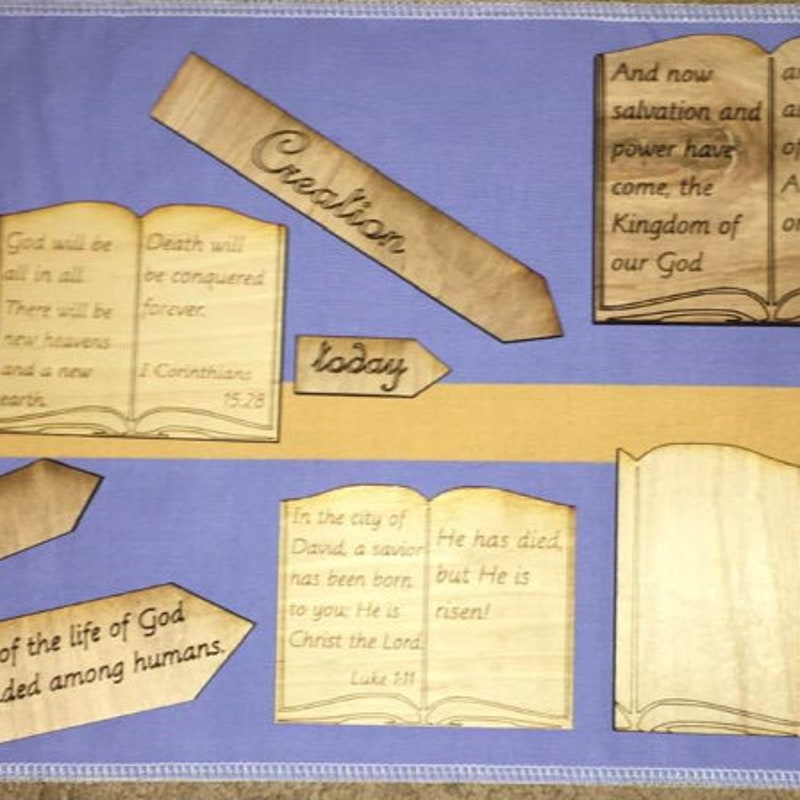 Creation
And now
salvation and
power have
come, the
Kingdom of
our God
God will be
all in all.
There will be
new heavens
and a new
earth.
Death will
be conquered
forever.
I Corinthians
15:28
today
of the life of God
among humans.
In the city of
David, a savior
has been born
to you: He is
Christ the Lord.
Luke 1:11
He has died,
but He is
risen!